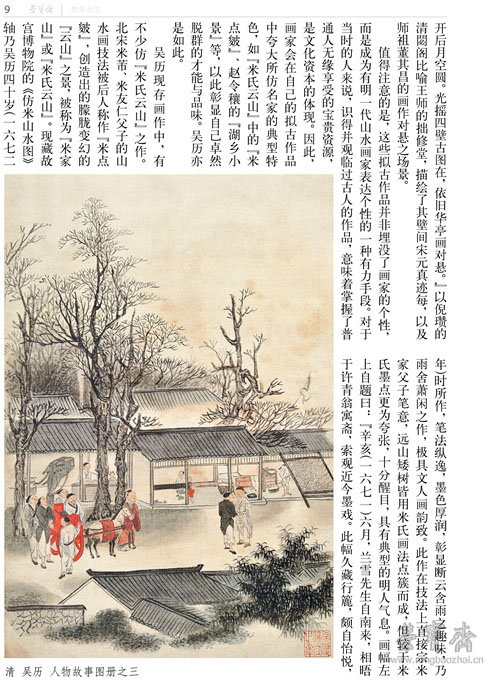 9
荣宝斋
开后月空圆。光摇四壁古图在，依旧华亭画对悬。』以倪瓒的
清閟阁比喻王师的拙修堂，描绘了其壁间宋元真迹每，以及
师祖董其昌的画作对悬之场景。
值得注意的是，这些拟古作品并非埋没了画家的个性，
而是成为有明一代山水画家表达个性的一种有力手段。对于
当时的人来说，识得并观临过古人的作品，意味着掌握了普
通人无缘享受的宝贵资源，
是文化资本的体现。因此，
画家会在自己的拟古作品
中夸大所仿名家的典型特
色，如『米氏云山』中的『米
点皴』、赵令穰的『湖乡小
景』等，以此彰显自己卓然
脱群的才能与品味。吴历亦
是如此。
吴历现存画作中，有
不少仿『米氏云山』之作。
北宋米芾、米友仁父子的山
水画技法被后人称作『米点
皴』，创造出的朦胧变幻的
『云山』之景，被称为『米家
山』或『米氏云山』。现藏故
宫博物院的《仿米山水图》
轴乃吴历四十岁（一六七二
年）时所作，笔法纵逸，墨色厚润，彰显断云含雨之趣味，乃
雨舍萧闲之作，极具文人画韵致。此作在技法上直接宗米
家父子笔意，远山矮树皆用米氏画法点簇而成，但较于米
氏墨点更为夸张，十分醒目，具有典型的明人气息。画幅左
上自题曰：『辛亥（一六七一）六月，兰雪先生自南来，相晤
于许青翁寓斋，索观近今墨戏，此幅久藏行簏，颇自怡悦，
清 吴历 人物故事图册之三
荣宝斋
www.rongbaozhai.cn